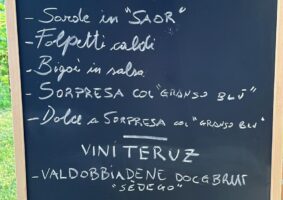 - Sarde in "SAOR"
- Folpetti caldi
- Bigoi in salsa
- SORPRESA COL "GRANSO BLÙ"
- DOLCE a SORPRESA COL "GRANSO BLÙ"
VINI TERUZ
- VALDOBBIADENE DOCG BRUT
"SEDEGO"